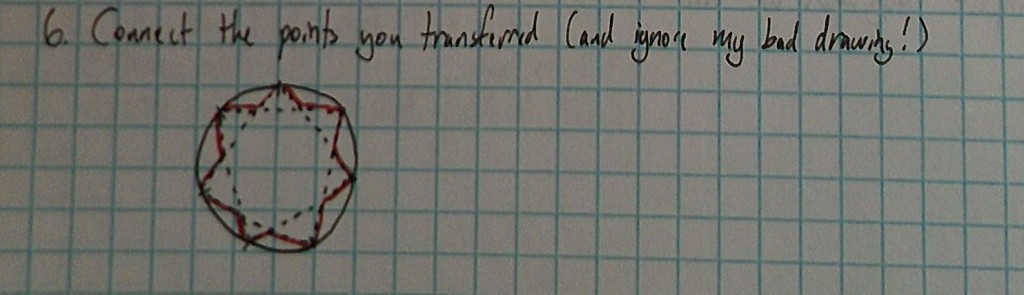 6. Connect the points you transferred (and ignore my bad drawing!)